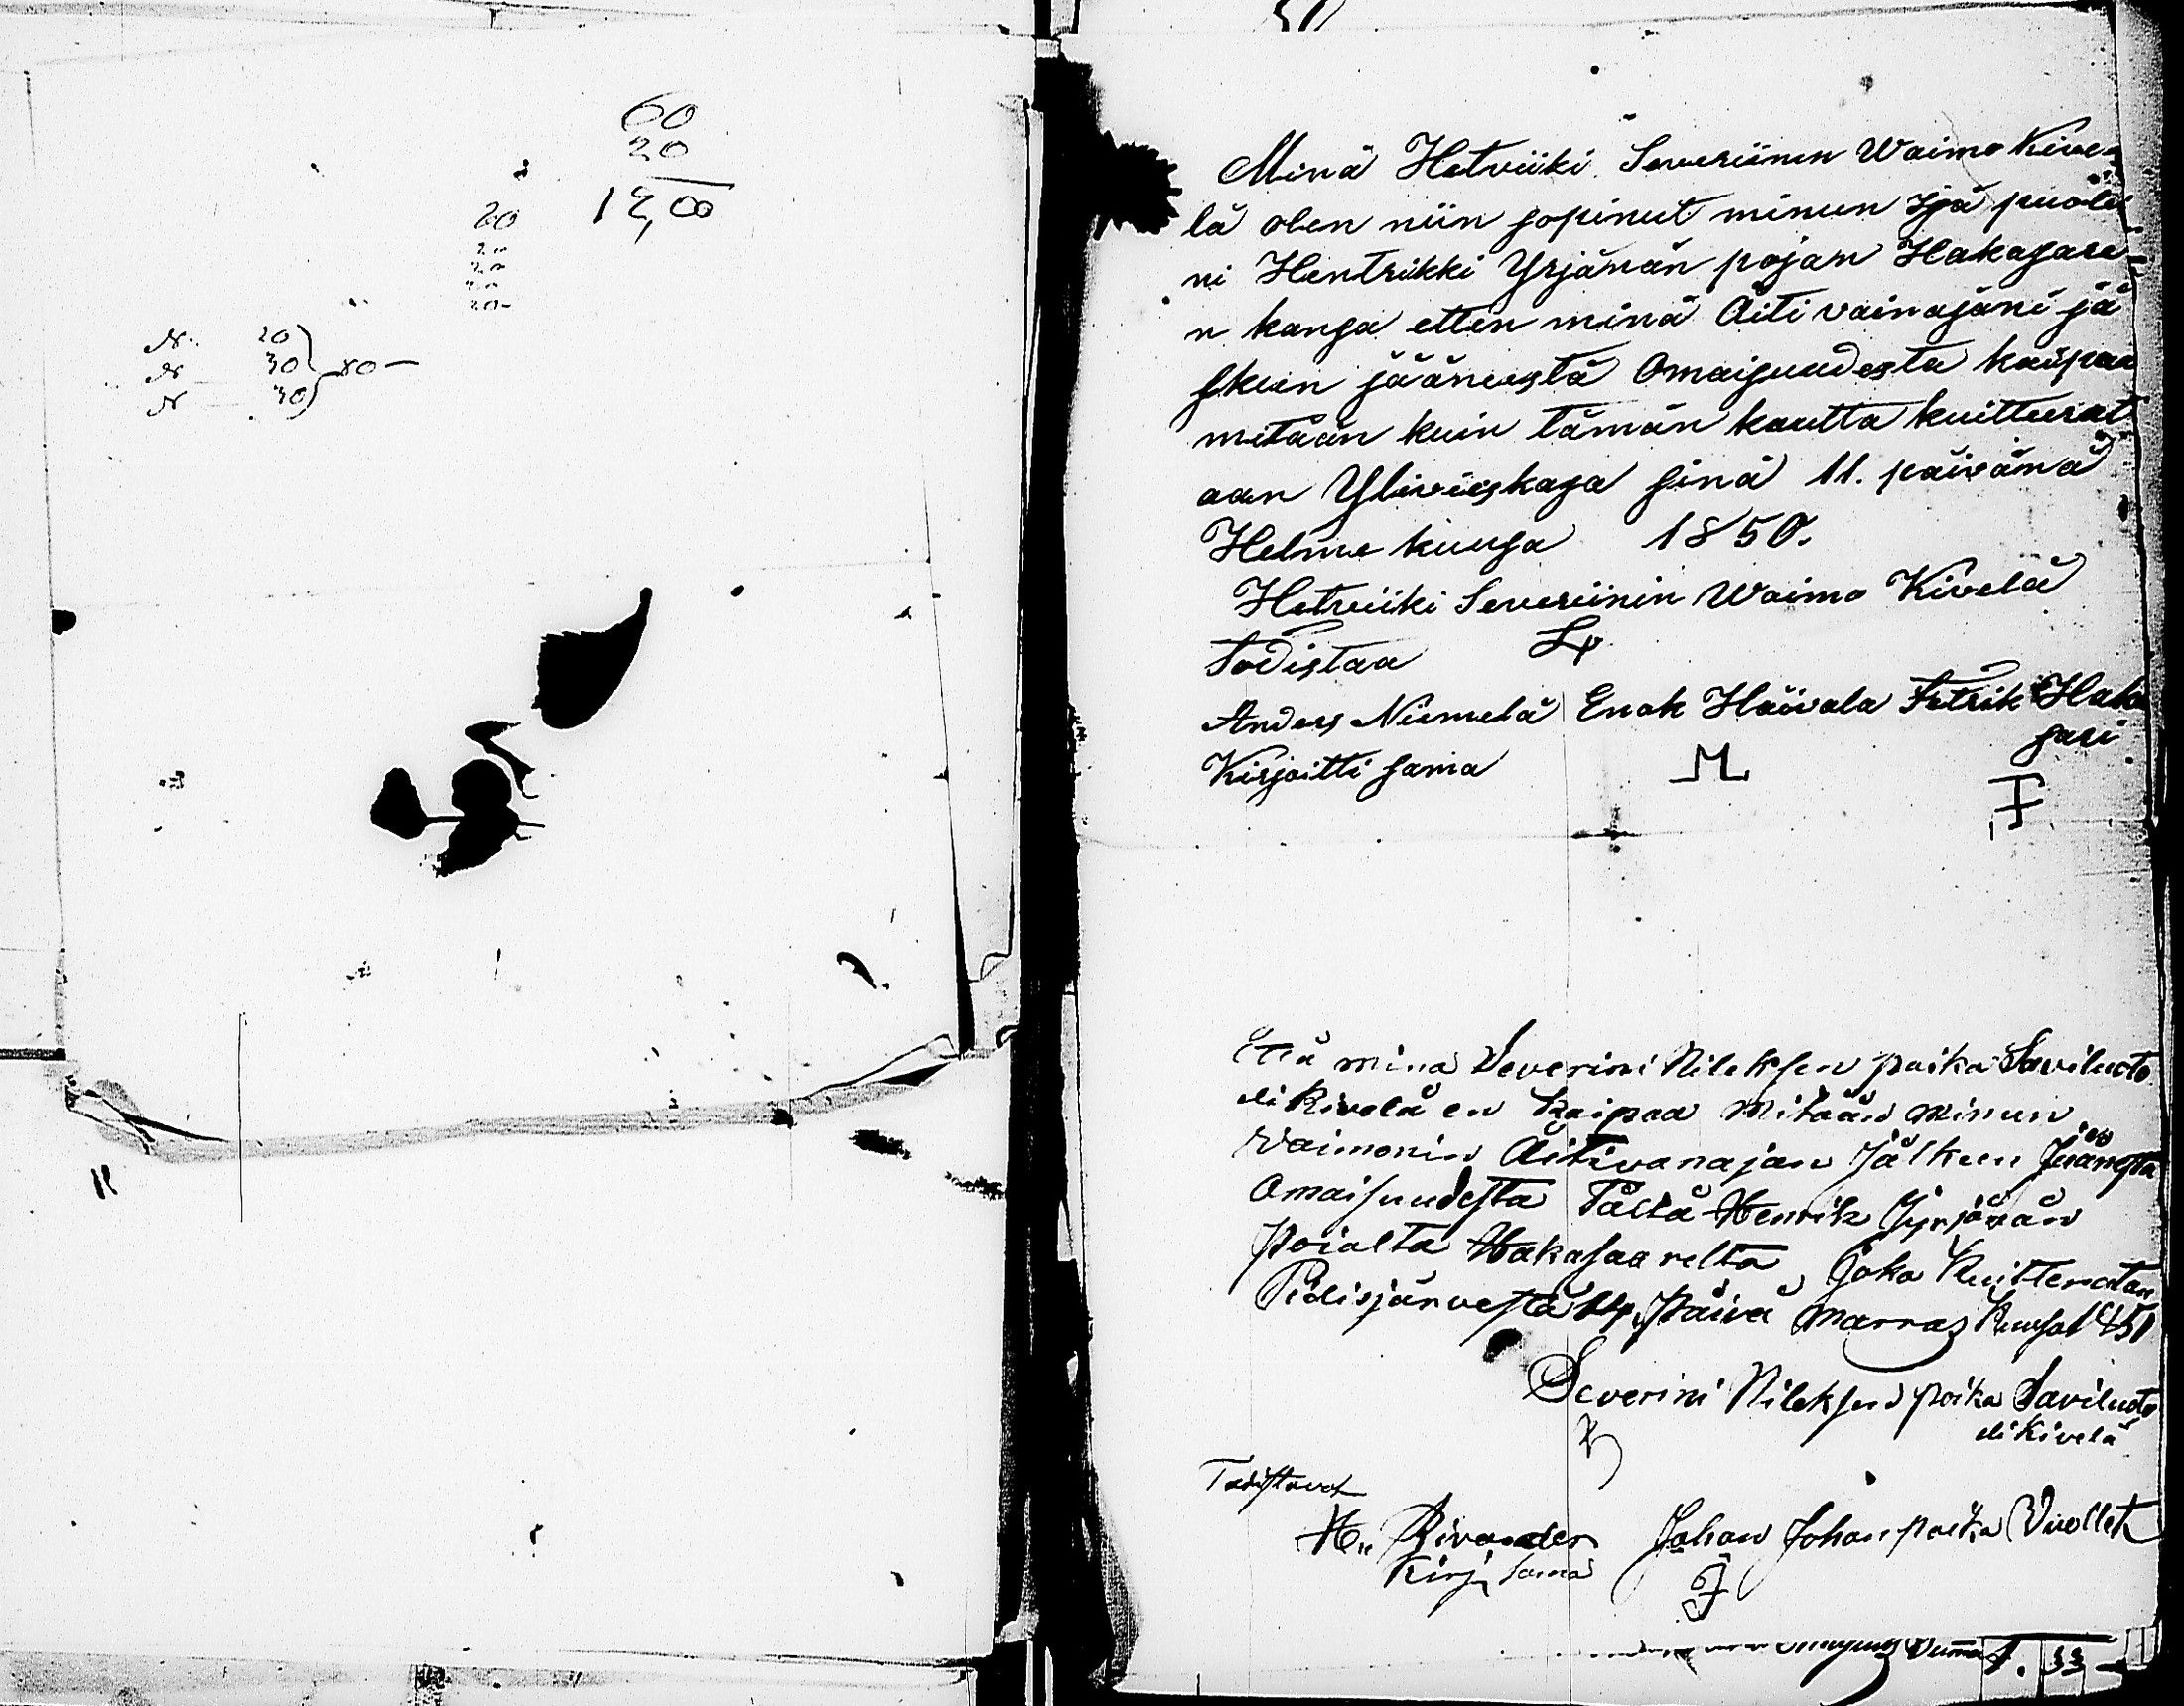 60
20
12,00
20
20
20
20
20-
N 20
N 30 } 80 —
N 30
Minä Hetviiki Severiinin Waimo Kive-
lä olen niin sopinut minun Isä puole
ni Hentrikki Yrjänän pojan Hakasare-
n kansa etten minä Äiti vainajani jä
lkeen jääneestä Omaisuudesta kaipaa
mitään kuin tämän kautta kuitterat
aan Ylivieskasa sinä 11. päivänä
Helme kuusa 1850.
Hetviiki Severiinin Waimo Kivelä
Todistaa
Anders Niemelä Enok Häivälä Fetrik Haka
sari
Kirjoitti sama
Että minä Severini Nileksen poika Saviluoto
eli Kivelä en kaipaa mitään minun
Vaimonin Äitivanajan Jälkeen Jäänestä
Omaisuudesta Tältä Henrik Yrjänän
Poialta Hakasaarelta, Joka Kuitteratan
Pidisjärvestä 14 Päivä Marras Kuusa 1851
Severini Nileksen poika Saviluoto
eli Kivelä
Todistavat
H. Rivander Johan Johan poika Vuollet
Kirj. sama
Summa 1. 33